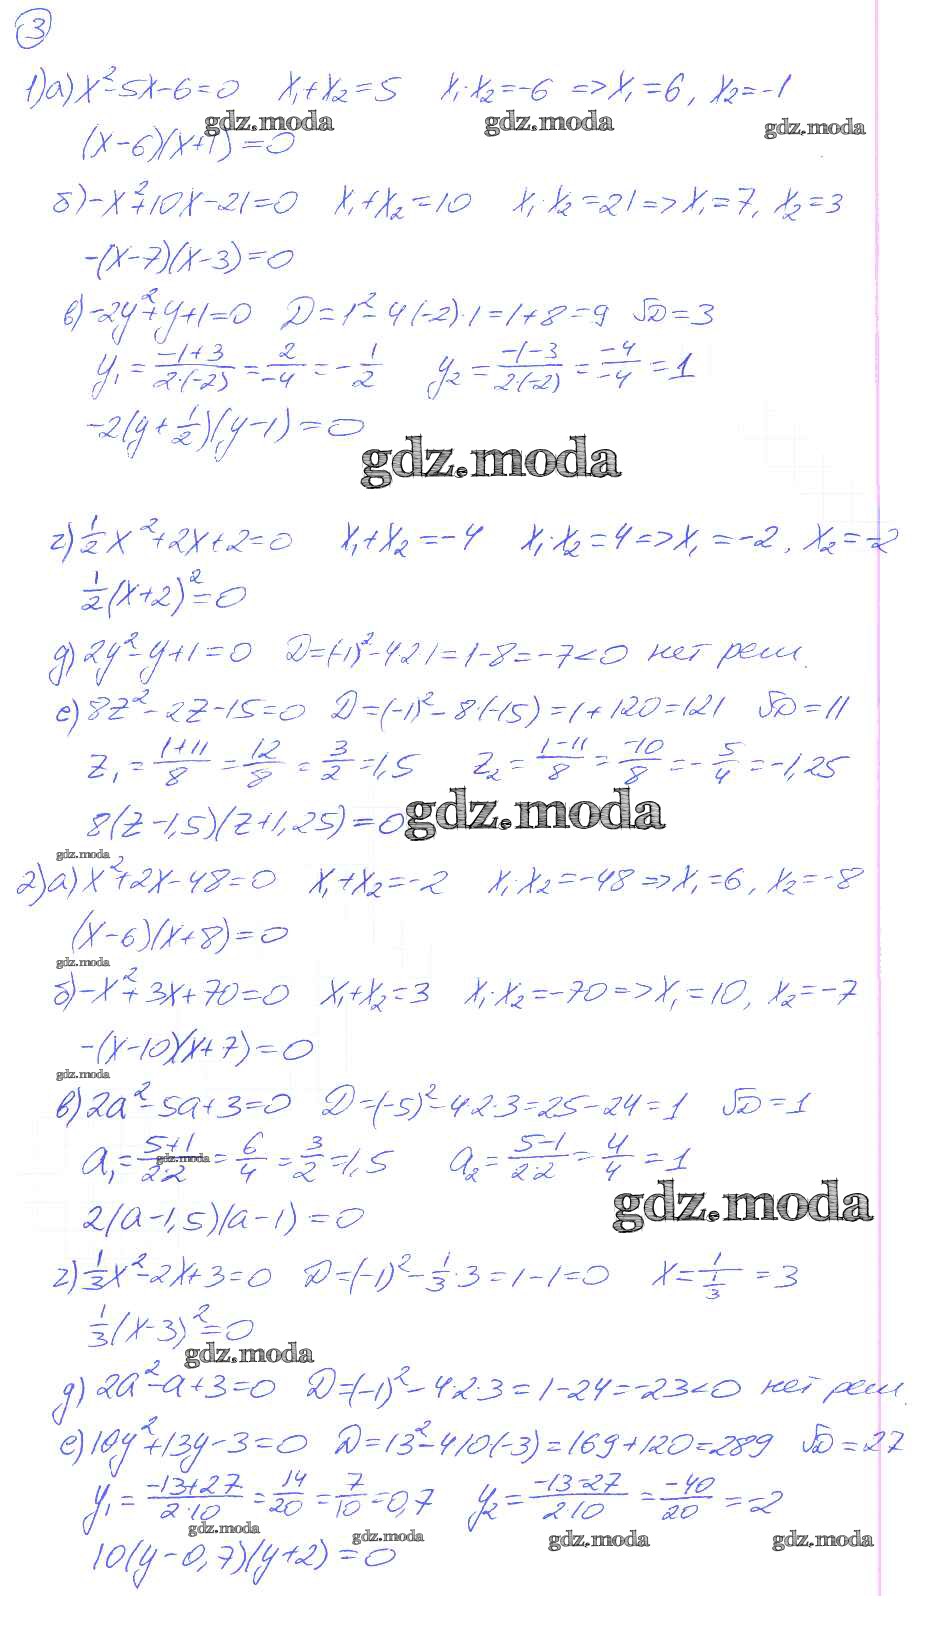 3
1) а) x²-5x-6=0 x₁+x₂=5 x₁·x₂=-6 => x₁=6, x₂=-1
gdz.moda gdz.moda gdz.moda
(x-6)(x+1)=0
б) -x²+10x-21=0 x₁+x₂=10 x₁·x₂=21 => x₁=7, x₂=3
-(x-7)(x-3)=0
в) -2y²+y+1=0 D=1²-4(-2)·1=1+8=9 √D=3
y₁=(-1+3)/(2·(-2))=2/-4=-1/2 y₂=(-1-3)/(2(-2))=-4/-4=1
-2(y+1/2)(y-1)=0
gdz.moda
г) 1/2x²+2x+2=0 x₁+x₂=-4 x₁·x₂=4 => x₁=-2, x₂=-2
1/2(x+2)²=0
д) 2y²-y+1=0 D=(-1)²-4·2·1=1-8=-7<0 нет реш.
е) 8z²-2z-15=0 D=(-1)²-8·(-15)=1+120=121 √D=11
z₁=(1+11)/8=12/8=3/2=1,5 z₂=(1-11)/8=-10/8=-5/4=-1,25
8(z-1,5)(z+1,25)=0 gdz.moda
gdz.moda
2) а) x²+2x-48=0 x₁+x₂=-2 x₁·x₂=-48 => x₁=6, x₂=-8
(x-6)(x+8)=0
gdz.moda
б) -x²+3x+70=0 x₁+x₂=3 x₁·x₂=-70 => x₁=10, x₂=-7
-(x-10)(x+7)=0
gdz.moda
в) 2a²-5a+3=0 D=(-5)²-4·2·3=25-24=1 √D=1
a₁=(5+1)/(2·2)=6/4=3/2=1,5 a₂=(5-1)/(2·2)=4/4=1
gdz.moda
2(a-1,5)(a-1)=0 gdz.moda
г) 1/3x²-2x+3=0 D=(-1)²-1/3·3=1-1=0 x=1/(1/3)=3
1/3(x-3)²=0
gdz.moda
д) 2a²-a+3=0 D=(-1)²-4·2·3=1-24=-23<0 нет реш.
е) 10y²+13y-3=0 D=13²-4·10(-3)=169+120=289 √D=27
y₁=(-13+27)/(2·10)=14/20=7/10=0,7 y₂=(-13-27)/(2·10)=-40/20=-2
gdz.moda gdz.moda gdz.moda gdz.moda
10(y-0,7)(y+2)=0